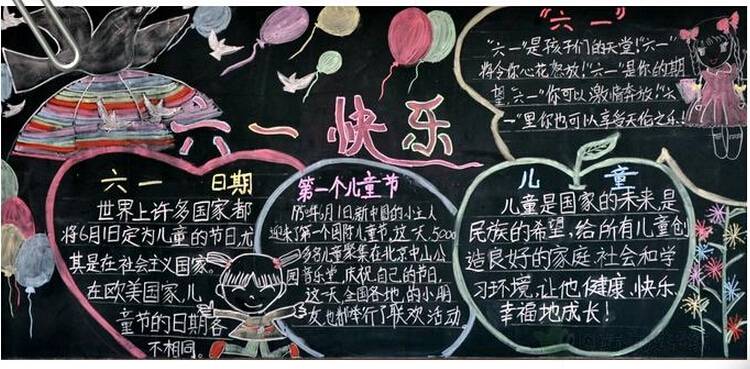 "六一"
"六一"是孩子们的天堂!"六一"
将令你心花怒放!"六一"是你的期
望,"六一"你可以激情奔放!"六
一"里你也可以享受天伦之乐!
六一快乐
六一 日期
世界上许多国家都
将6月1日定为儿童的节日尤
其是在社会主义国家。
在欧美国家,儿
童节的日期各
不相同。
第一个儿童节
6月1日新中国的小主人
迎来了第一个国际儿童节,这一天,5000
多名儿童聚集在北京中山公
园音乐堂,庆祝自己的节日,
这一天,全国各地的小朋
友也都举行了联欢活动
儿童
儿童是国家的未来,是
民族的希望,给所有儿童创
造良好的家庭、社会和学
习环境,让他健康、快乐、
幸福地成长!